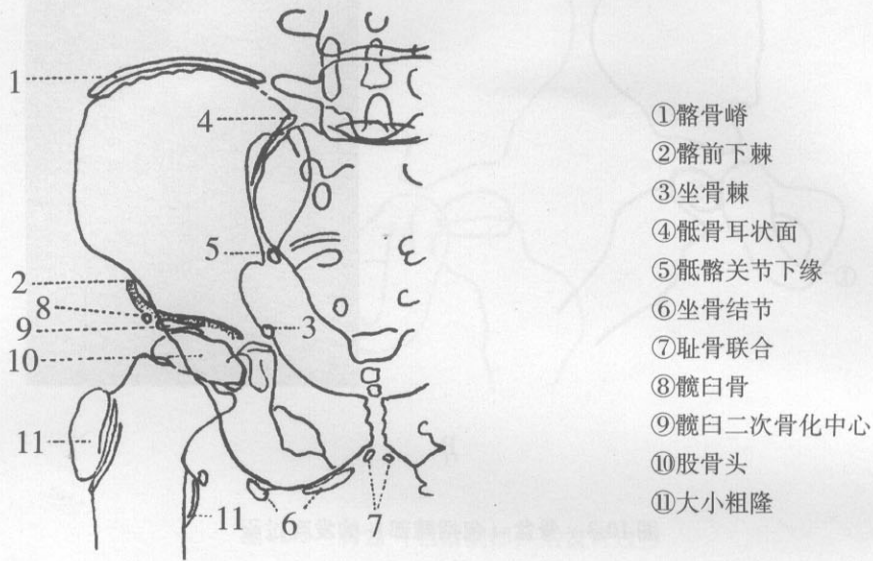 1
4
5
2
8
3
9
10
11
11
6
7
①髂骨嵴
②髂前下棘
③坐骨棘
④骶骨耳状面
⑤骶髂关节下缘
⑥坐骨结节
⑦耻骨联合
⑧髋臼骨
⑨髋臼二次骨化中心
⑩股骨头
⑪大小粗隆